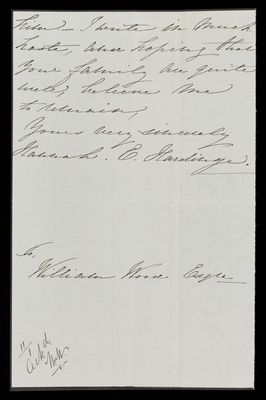 him – I write in much
haste, and hoping that
your family are quite
well, believe me
to remain,
Yours very sincerely
Hannah. E. Hardinge.
To,
William Wood Esqre
Ackd